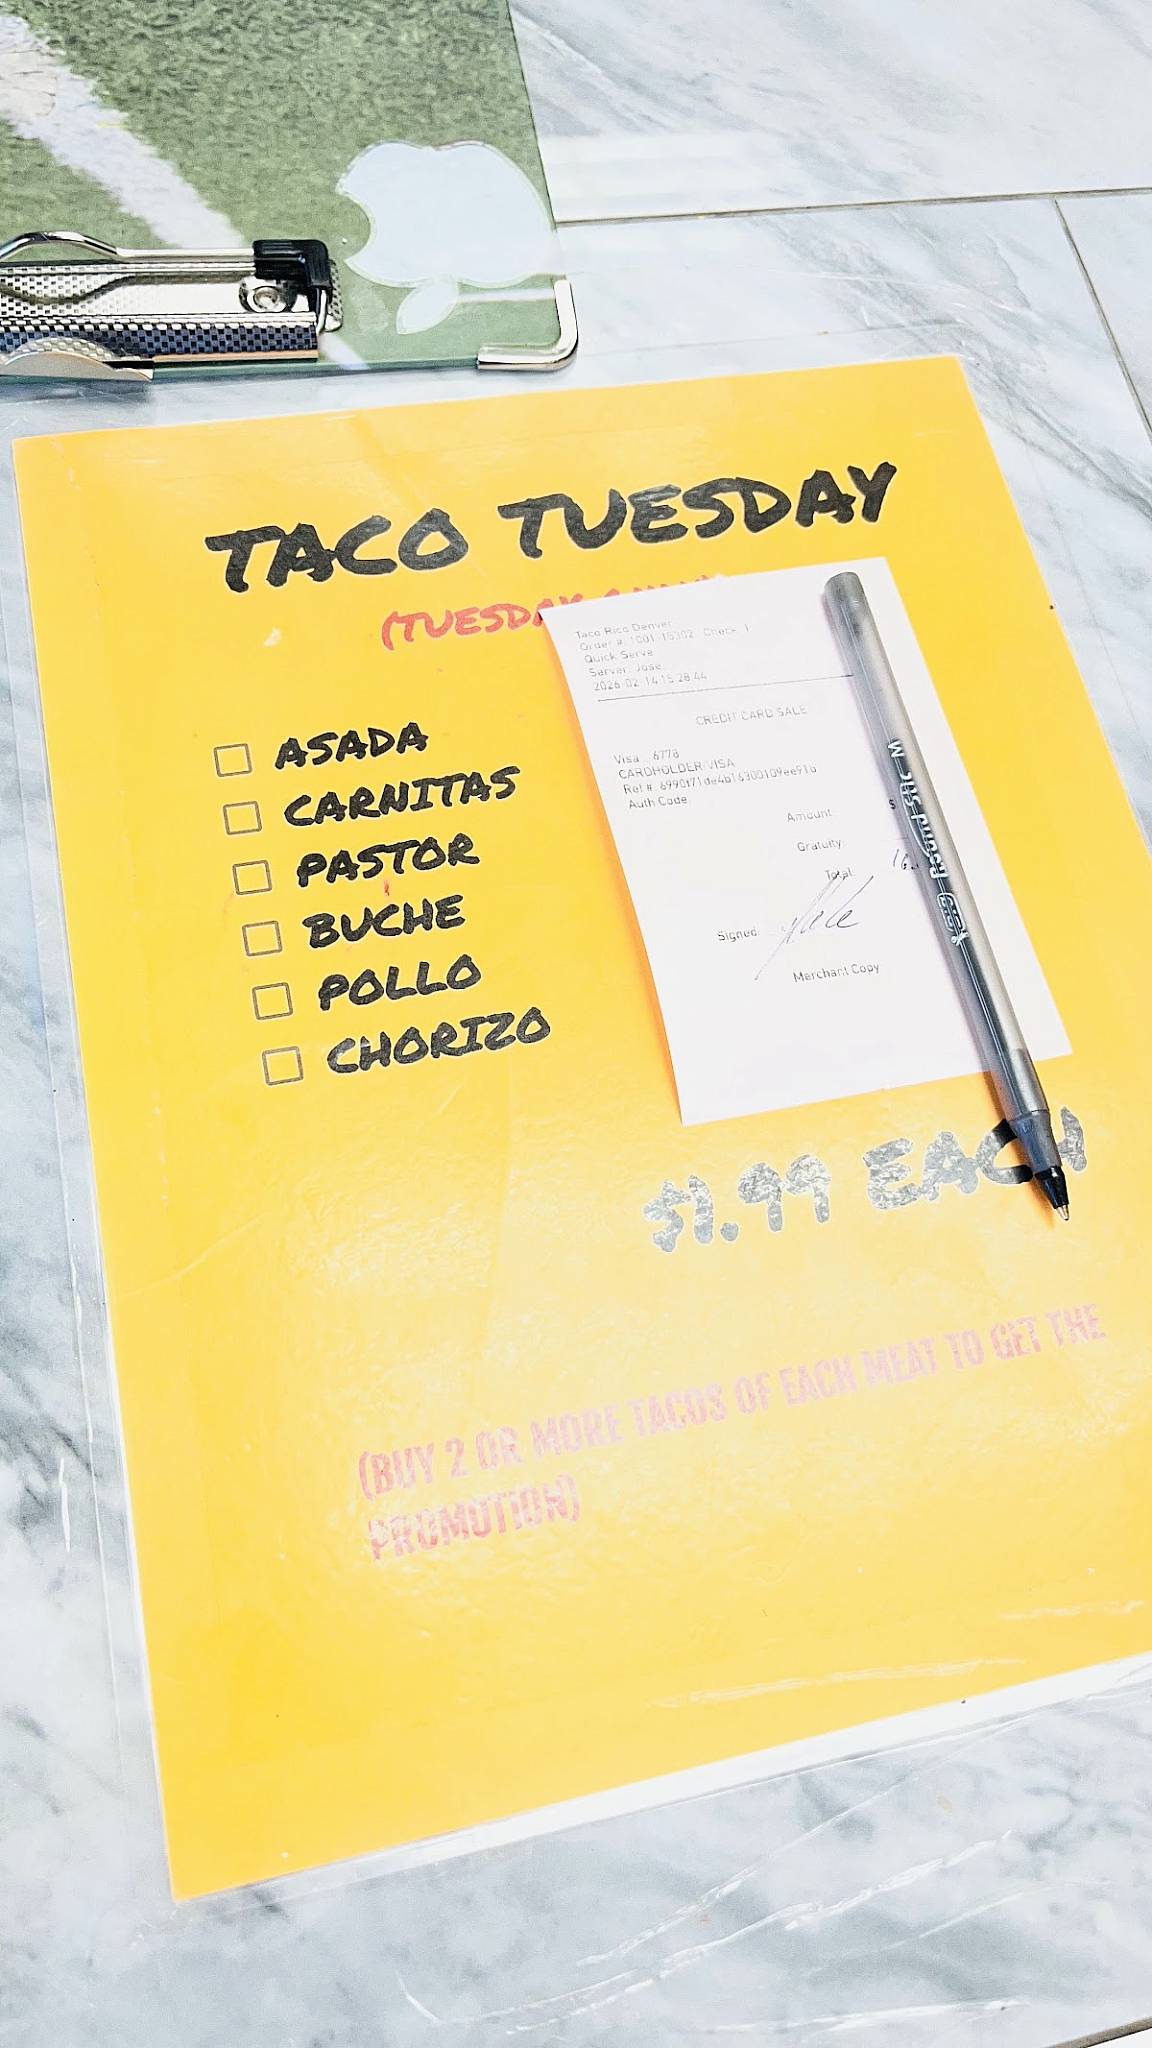 TACO TUESDAY
(TUESDAY
ASADA
CARNITAS
PASTOR
BUCHE
POLLO
CHORIZO
Taco Rico Denver
Order #: 1001-15302 Check 1
Quick Serve
Server: Jose
2026-02-14 15:28:44
CREDIT CARD SALE
Visa 6778
CARDHOLDER/VISA
Ref #:
Auth Code:
Amount $
Gratuity
Total
Signed:
Merchant Copy
Round Stic M
BIC
$1.99 EACH
(BUY 2 OR MORE TACOS OF EACH MEAT TO GET THE
PROMOTION)